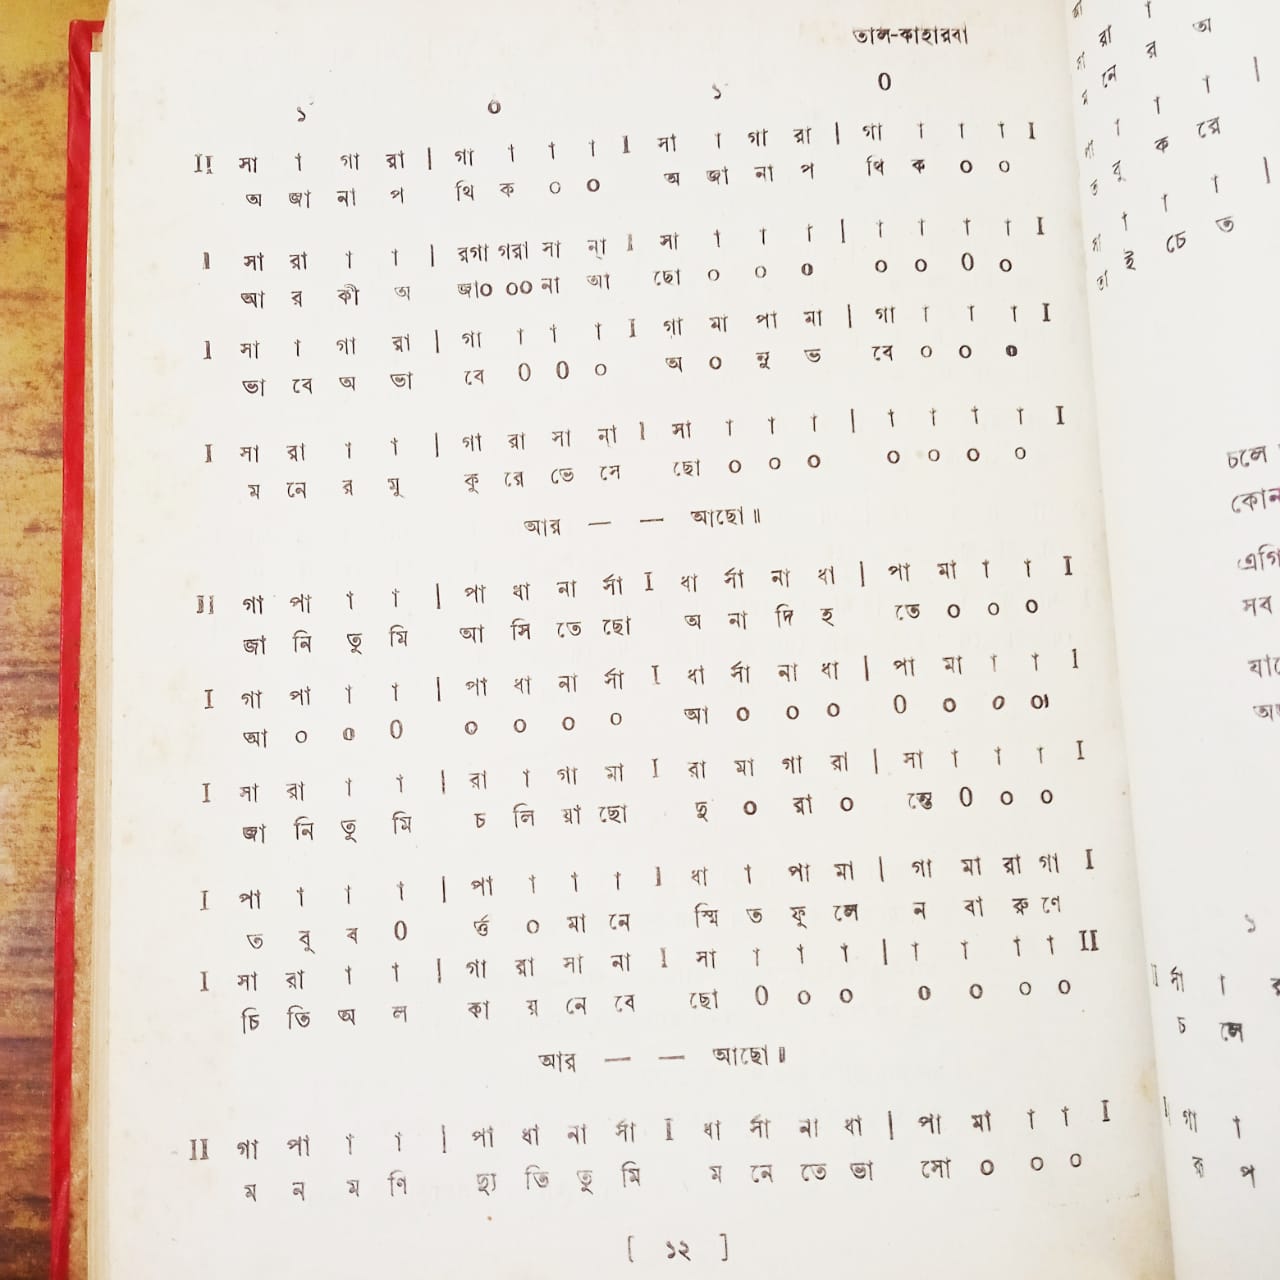 তাল-কাহারবা
১´ ০ ১´ ০
II সা া গা রা | গা া া া I সা া গা রা | গা া া া I
অ জা না প থি ক ০ ০ অ জা না প থি ক ০ ০
I সা রা া া | রগা গরা সা ন্া I সা া া া | া া া া I
আ র কী অ জা০ ০০ না আ ছো ০ ০ ০ ০ ০ ০ ০
I সা া গা রা | গা া া া I গা মা পা মা | গা া া া I
ভা বে অ ভা বে ০ ০ ০ অ ০ নু ভ বে ০ ০ ০
I সা রা া া | গা রা সা ন্া I সা া া া | া া া া I
ম নে র মু কু রে ভে সে ছো ০ ০ ০ ০ ০ ০ ০
আর — — আছো॥
II গা পা া া | পা ধা না র্সা I ধা র্সা না ধা | পা মা া া I
জা নি তু মি আ সি তে ছো অ না দি হ তে ০ ০ ০
I গা পা া া | পা ধা না র্সা I ধা র্সা না ধা | পা মা া া I
আ ০ ০ ০ ০ ০ ০ ০ আ ০ ০ ০ ০ ০ ০ ০।
I সা রা া া | রা া গা মা I রা মা গা রা | সা া া া I
জা নি তু মি চ লি য়া ছো দূ ০ রা ০ ন্তে ০ ০ ০
I পা া া া | পা া া া I ধা া পা মা | গা মা রা গা I
ত বু ব ০ র্ত্ত ০ মা নে স্মি ত ফু লে ন বা রু ণে
I সা রা া া | গা রা সা না I সা া া া | া া া া II
চি তি অ ল কা য় নে বে ছো ০ ০ ০ ০ ০ ০ ০
আর — — আছো॥
II গা পা া া | পা ধা না র্সা I ধা র্সা না ধা | পা মা া া I
ম ন ম ণি দ্যু তি তু মি ম নে তে ভা সো ০ ০ ০
[ ১২ ]
চলে
কোন
এগি
সব